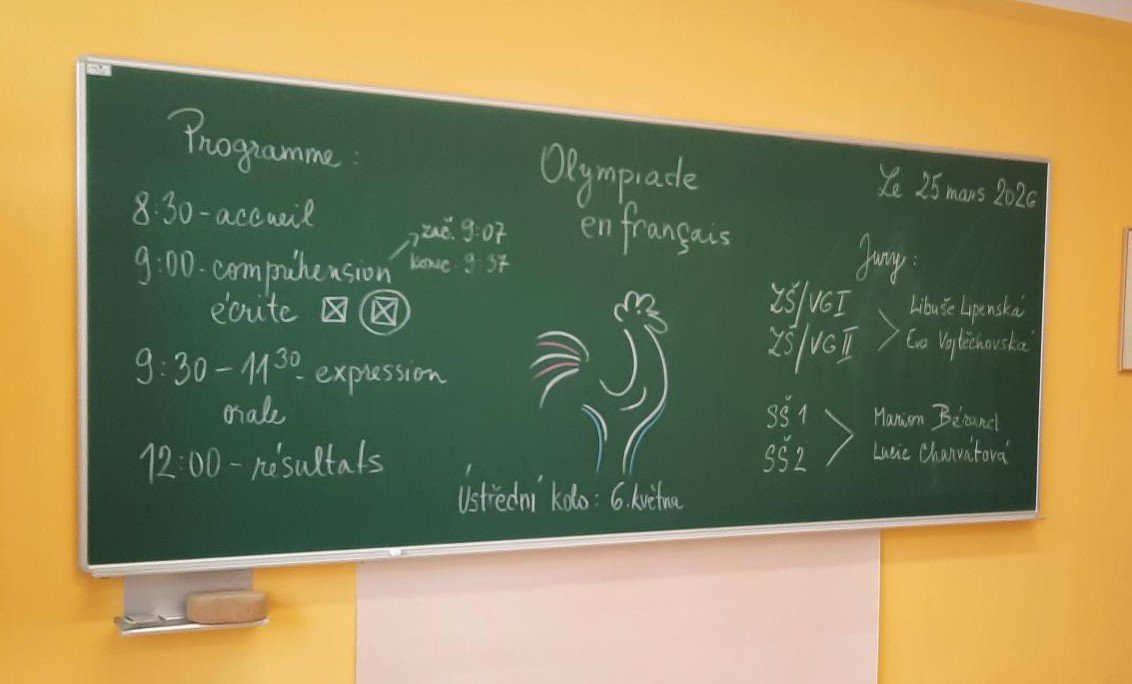 Programme :
8:30 - accueil
9:00 - compréhension
écrite
zač. 9:07
konec 9:37
9:30 - 11³⁰ - expression
orale
12:00 - résultats
Olympiade
en français
Ústřední kolo : 6. května
Le 25 mars 2026
Jury :
ZŠ/VG I
ZŠ/VG II
Libuše Lipenská
Eva Vojtěchovská
SŠ 1
SŠ 2
Marion Bérard
Lucie Charvátová